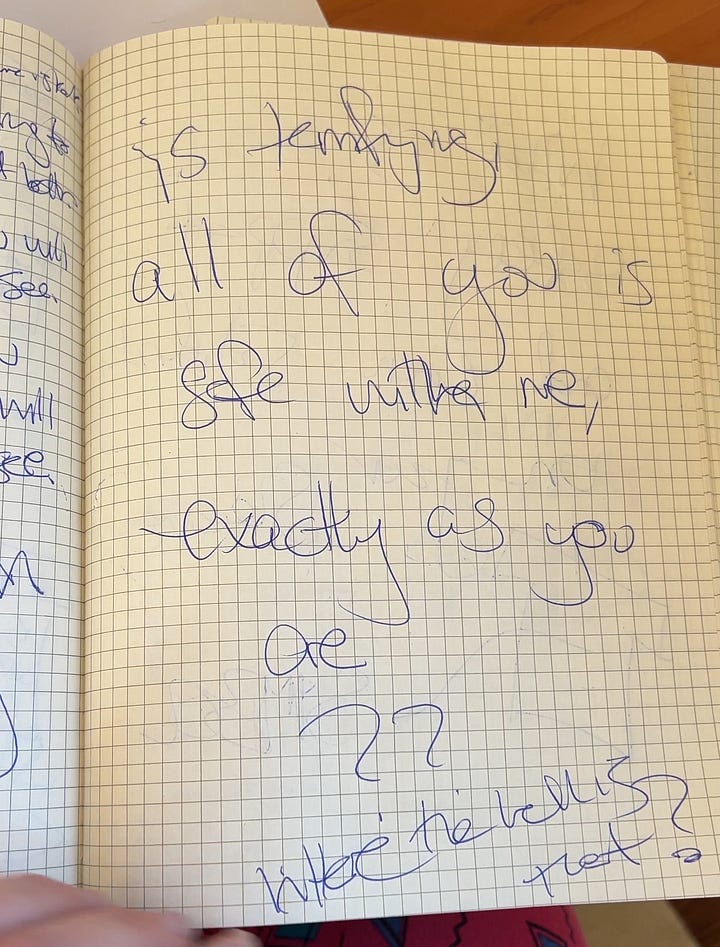 will
see.
will
see.
is terrifying,
all of you is
safe with me,
exactly as you
are
??
Where the hell is
that?